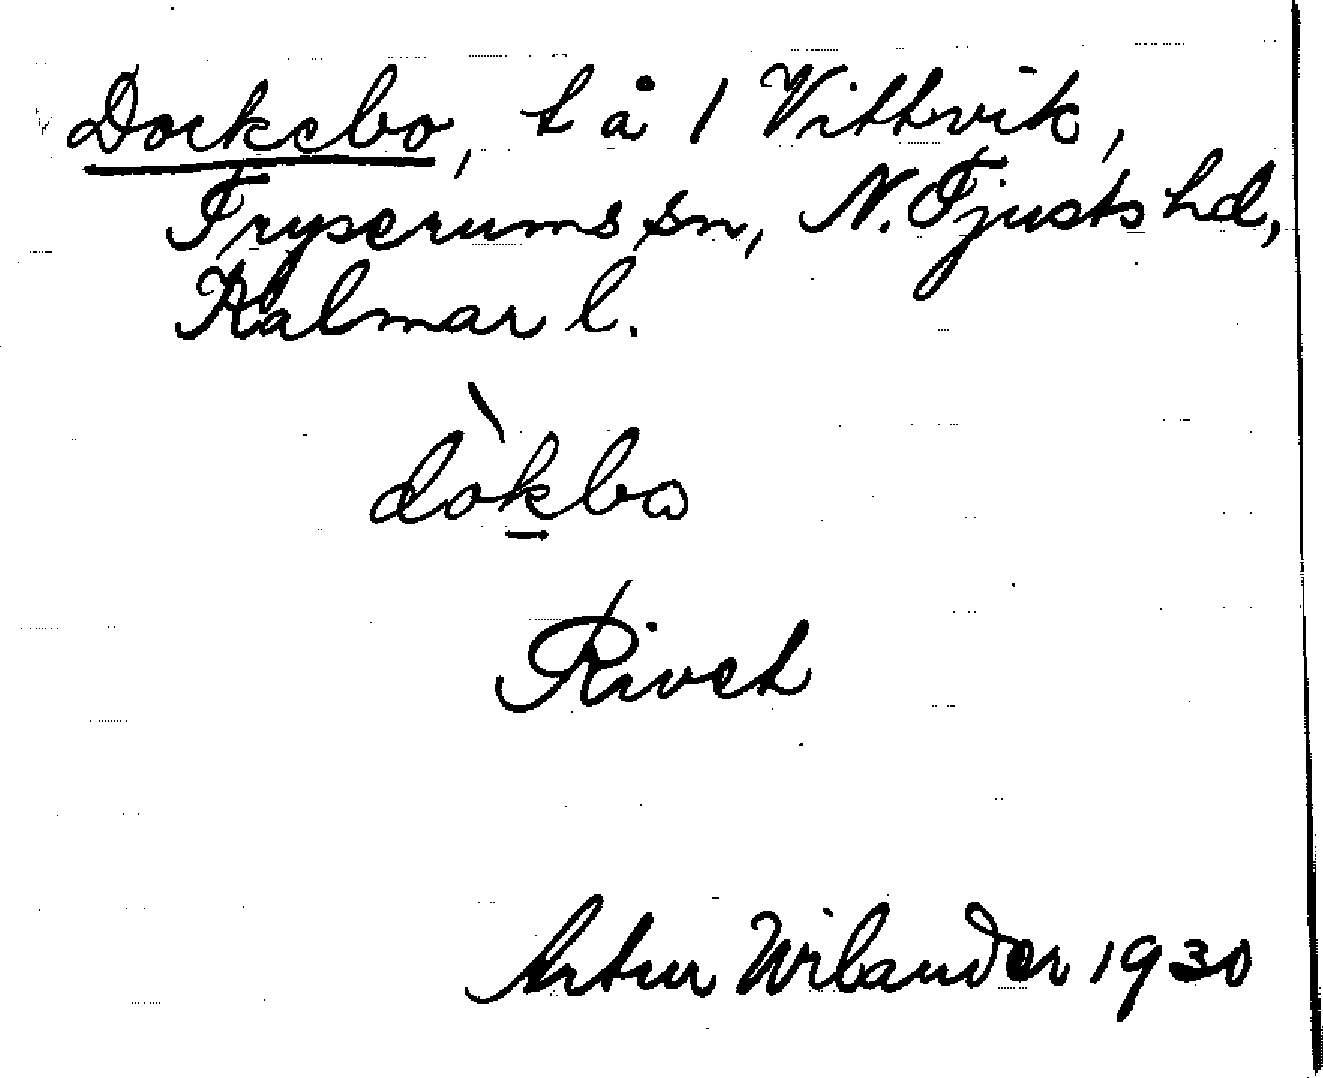 Dockebo, t å 1 Vittvik,
Tryserums sn, N. Tjusts hd,
Kalmar l.
dòkbo
Rivet
Artur Wilander 1930